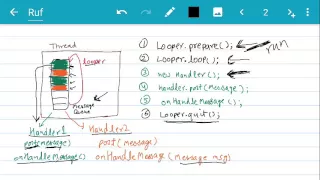 Ruf
2
Thread
Looper
Message
Queue
Handler1
postMessage()
onHandleMessage()
Handler2
post(message)
onHandleMessage(message msg)
① Looper.prepare();
② Looper.loop();
③ new Handler();
④ handler.post(Message);
⑤ onHandleMessage();
⑥ Looper.quit();
run